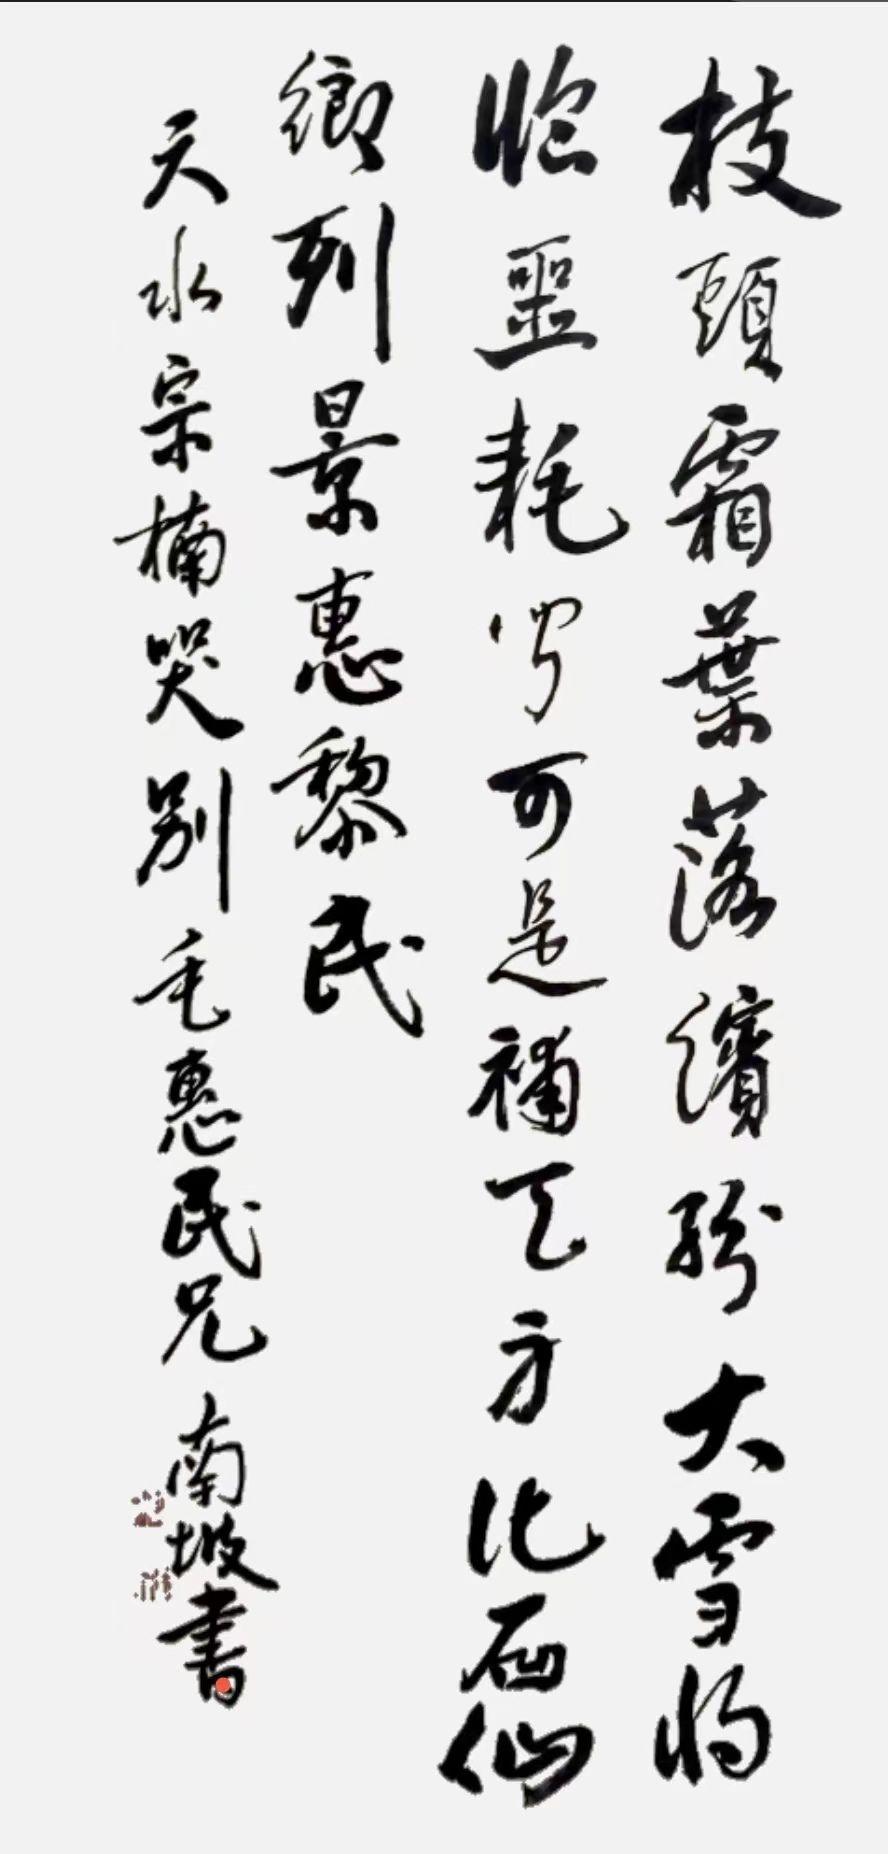 枝頭霜葉落繽紛大雪將
臨噩耗聞可是補天方化石仙
鄉列景惠黎民
天水宗楠哭别毛惠民兄南坡書